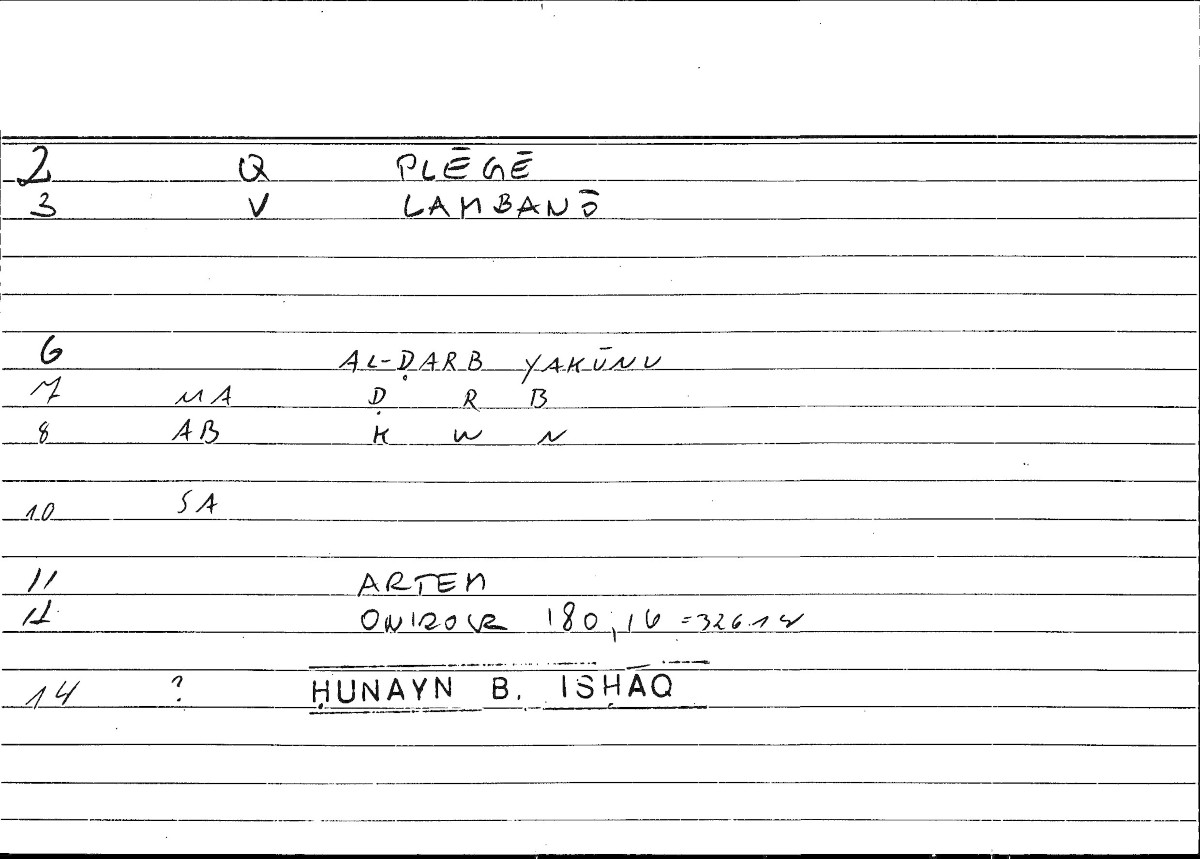 2 Q PLĒGĒ
3 V LAMBANŌ
6 AL-ḌARB YAKŪNU
7 MA Ḍ R B
8 AB K W N
10 SA
11 ARTEM
12 ONIROCR 180,16 =326.12
14 ? ḤUNAYN B. ISḤĀQ